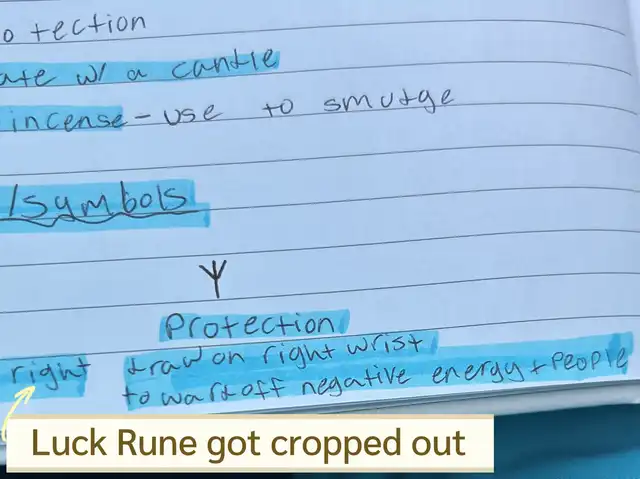 otection
ate w/ a candle
incense - use to smudge
/symbols
ᛉ
Protection
right draw on right wrist
to ward off negative energy + people
Luck Rune got cropped out